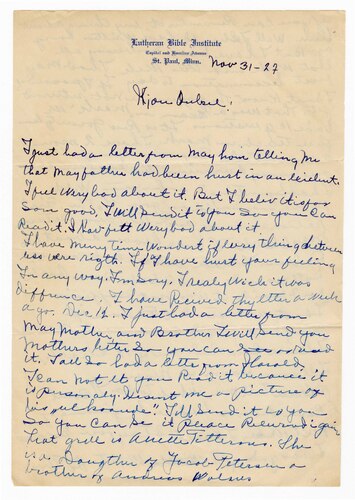 Lutheran Bible Institute
Capitol and Hamline Avenue
St. Paul, Minn.
Nov 31-27
I just had a letter from May hom telling Me
that May father had been hurt in an
I feel Very bad about it. But I it is for
som good, I will send it to you so you Can
Read it. I Hav felt Very bad about it
I have Meny time Wondert if every thing between
uss were rigth. If I have hurt your feeling
In any way. I'm sory. I realy Wich it was
diffrence. I have the letter a week
a go. Dec 12. I just had a letter from
May Mother and Brother I will Send you
Mothers letter so you can read
it. I all so had a letter from Harold,
I can not let you Read it because it
is personaly. He sent me a picture of
his I'll Send it to you
So you can Se it pleace
that girl is She
is a Daugther of Jacob Petersen a
brother of Andreas